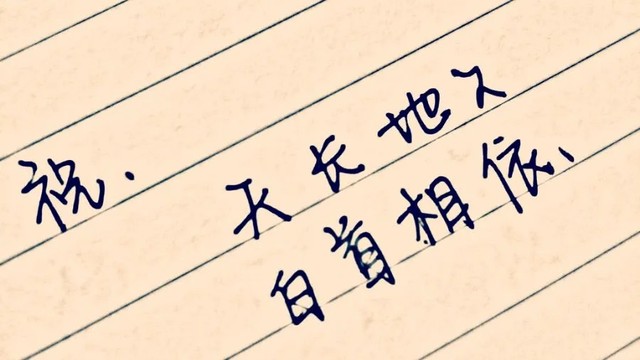 祝. 天长地久
白首相依、